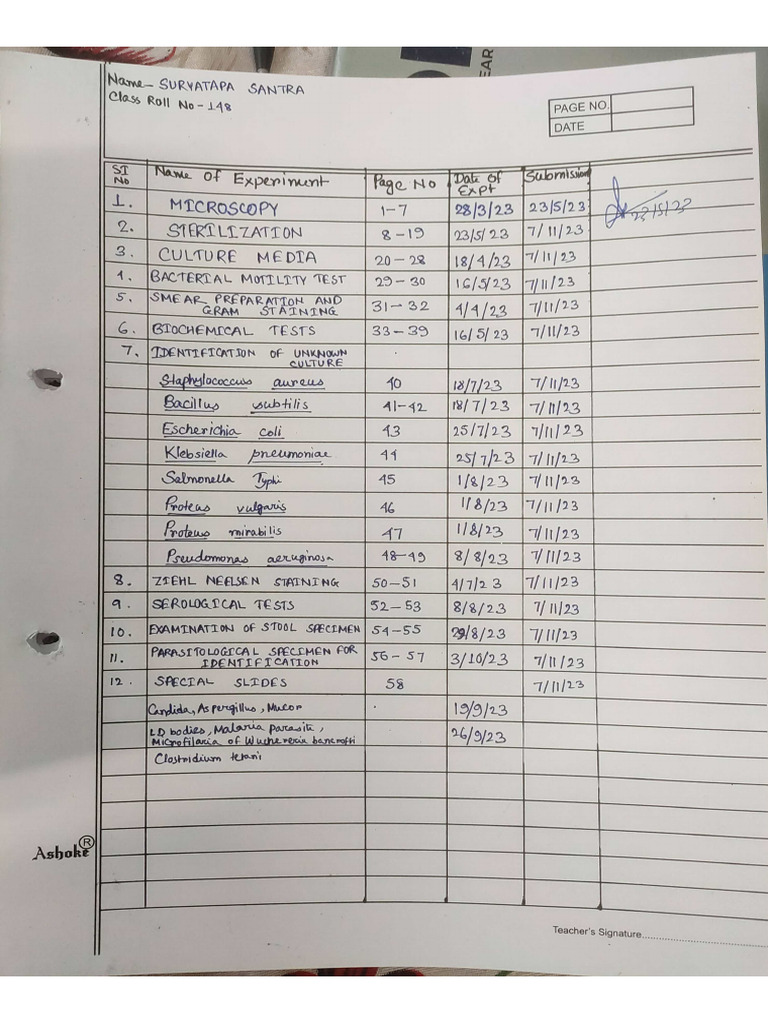 EAR
Name- SURYATAPA SANTRA
Class Roll No - 148
PAGE NO.
DATE
SI No Name of Experiment Page No Date of Expt Submission
1. MICROSCOPY 1-7 28/3/23 23/5/23 23/5/23
2. STERILIZATION 8-19 23/5/23 7/11/23
3. CULTURE MEDIA 20-28 18/4/23 7/11/23
4. BACTERIAL MOTILITY TEST 29-30 16/5/23 7/11/23
5. SMEAR PREPARATION AND
GRAM STAINING 31-32 4/4/23 7/11/23
6. BIOCHEMICAL TESTS 33-39 16/5/23 7/11/23
7. IDENTIFICATION OF UNKNOWN
CULTURE
Staphylococcus aureus 40 18/7/23 7/11/23
Bacillus subtilis 41-42 18/7/23 7/11/23
Escherichia coli 43 25/7/23 7/11/23
Klebsiella pneumoniae 44 25/7/23 7/11/23
Salmonella Typhi 45 1/8/23 7/11/23
Proteus vulgaris 46 1/8/23 7/11/23
Proteus mirabilis 47 1/8/23 7/11/23
Pseudomonas aeruginosa 48-49 8/8/23 7/11/23
8. ZIEHL NEELSEN STAINING 50-51 4/7/23 7/11/23
9. SEROLOGICAL TESTS 52-53 8/8/23 7/11/23
10. EXAMINATION OF STOOL SPECIMEN 54-55 29/8/23 7/11/23
11. PARASITOLOGICAL SPECIMEN FOR
IDENTIFICATION 56-57 3/10/23 7/11/23
12. SPECIAL SLIDES 58 7/11/23
Candida, Aspergillus, Mucor 19/9/23
LD bodies, Malaria parasite,
Microfilaria of Wuchereria bancrofti 26/9/23
Clostridium tetani
Ashoke®
Teacher's Signature